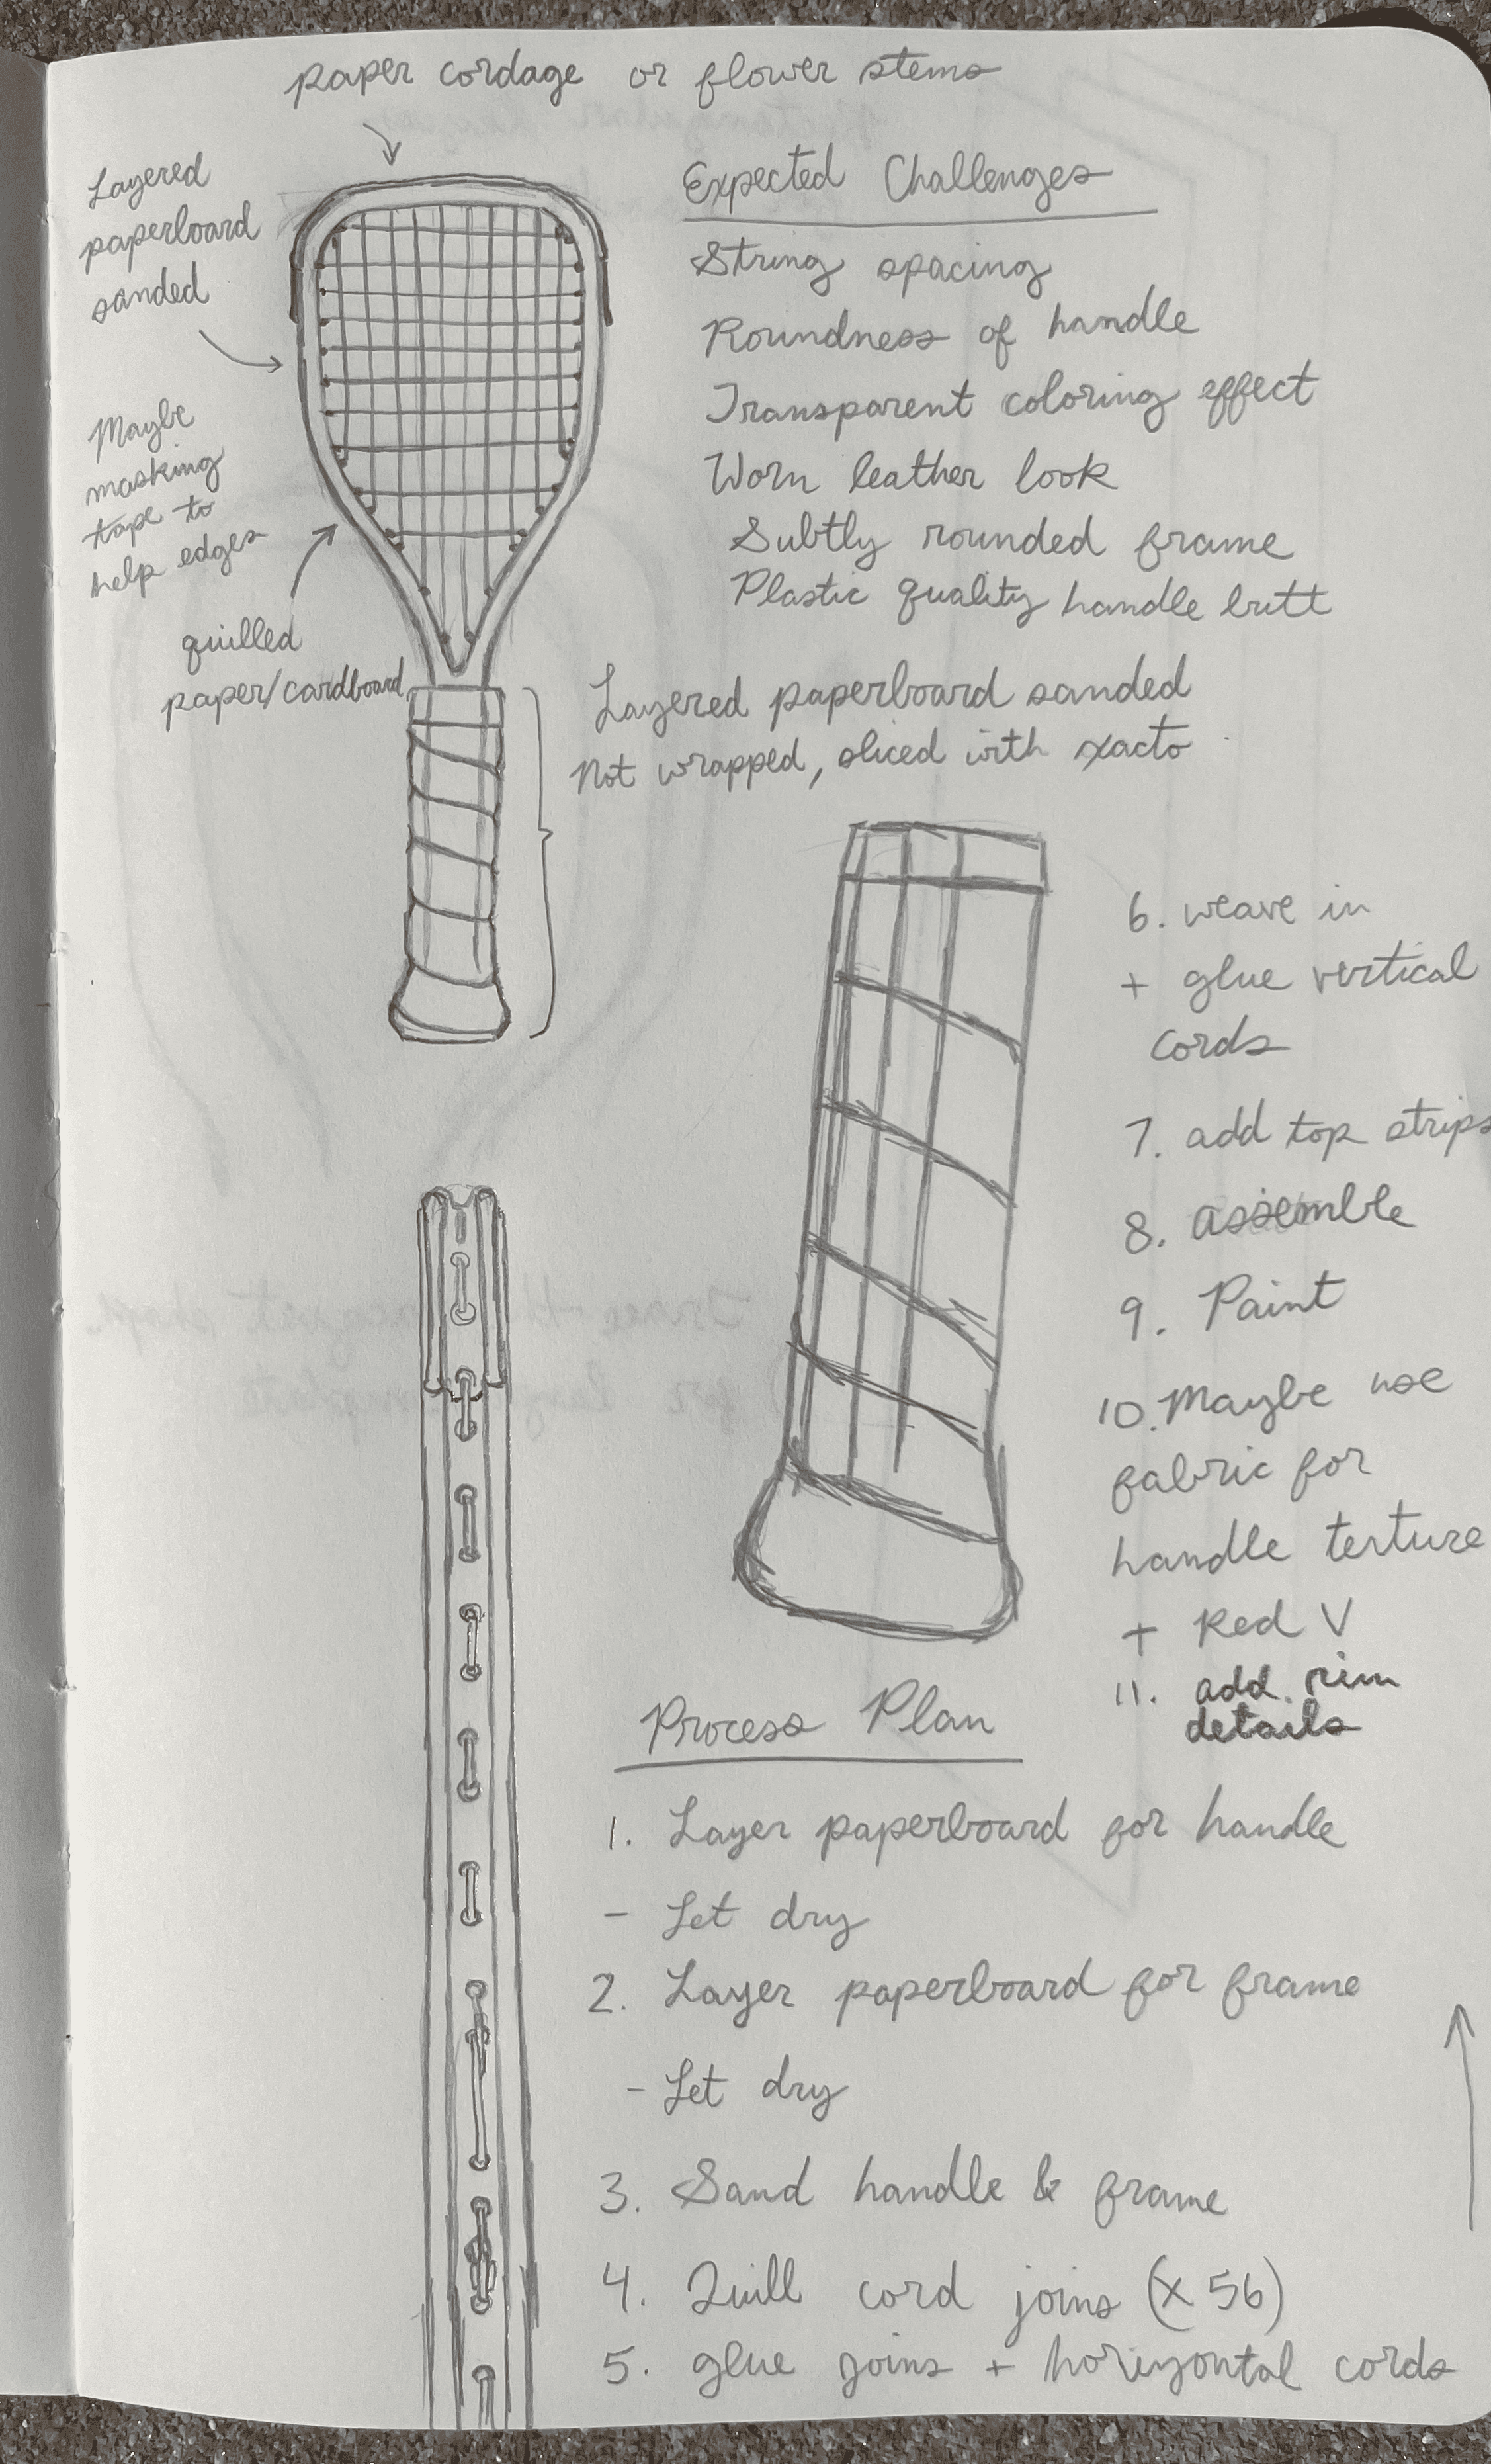 paper cordage or flower stems
Layered
paperboard
sanded
Maybe
masking
tape to
help edges
quilled
paper/cardboard
Expected Challenges
String spacing
Roundness of handle
Transparent coloring effect
Worn leather look
Subtly rounded frame
Plastic quality handle butt
Layered paperboard sanded
Not wrapped, sliced with xacto
Process Plan
1. Layer paperboard for handle
- Let dry
2. Layer paperboard for frame
- Let dry
3. Sand handle & frame
4. Quill cord joins (x 56)
5. glue joins + horizontal cords
6. weave in
+ glue vertical
cords
7. add top strips
8. assemble
9. Paint
10. Maybe use
fabric for
handle texture
+ Red V
11. add rim
details